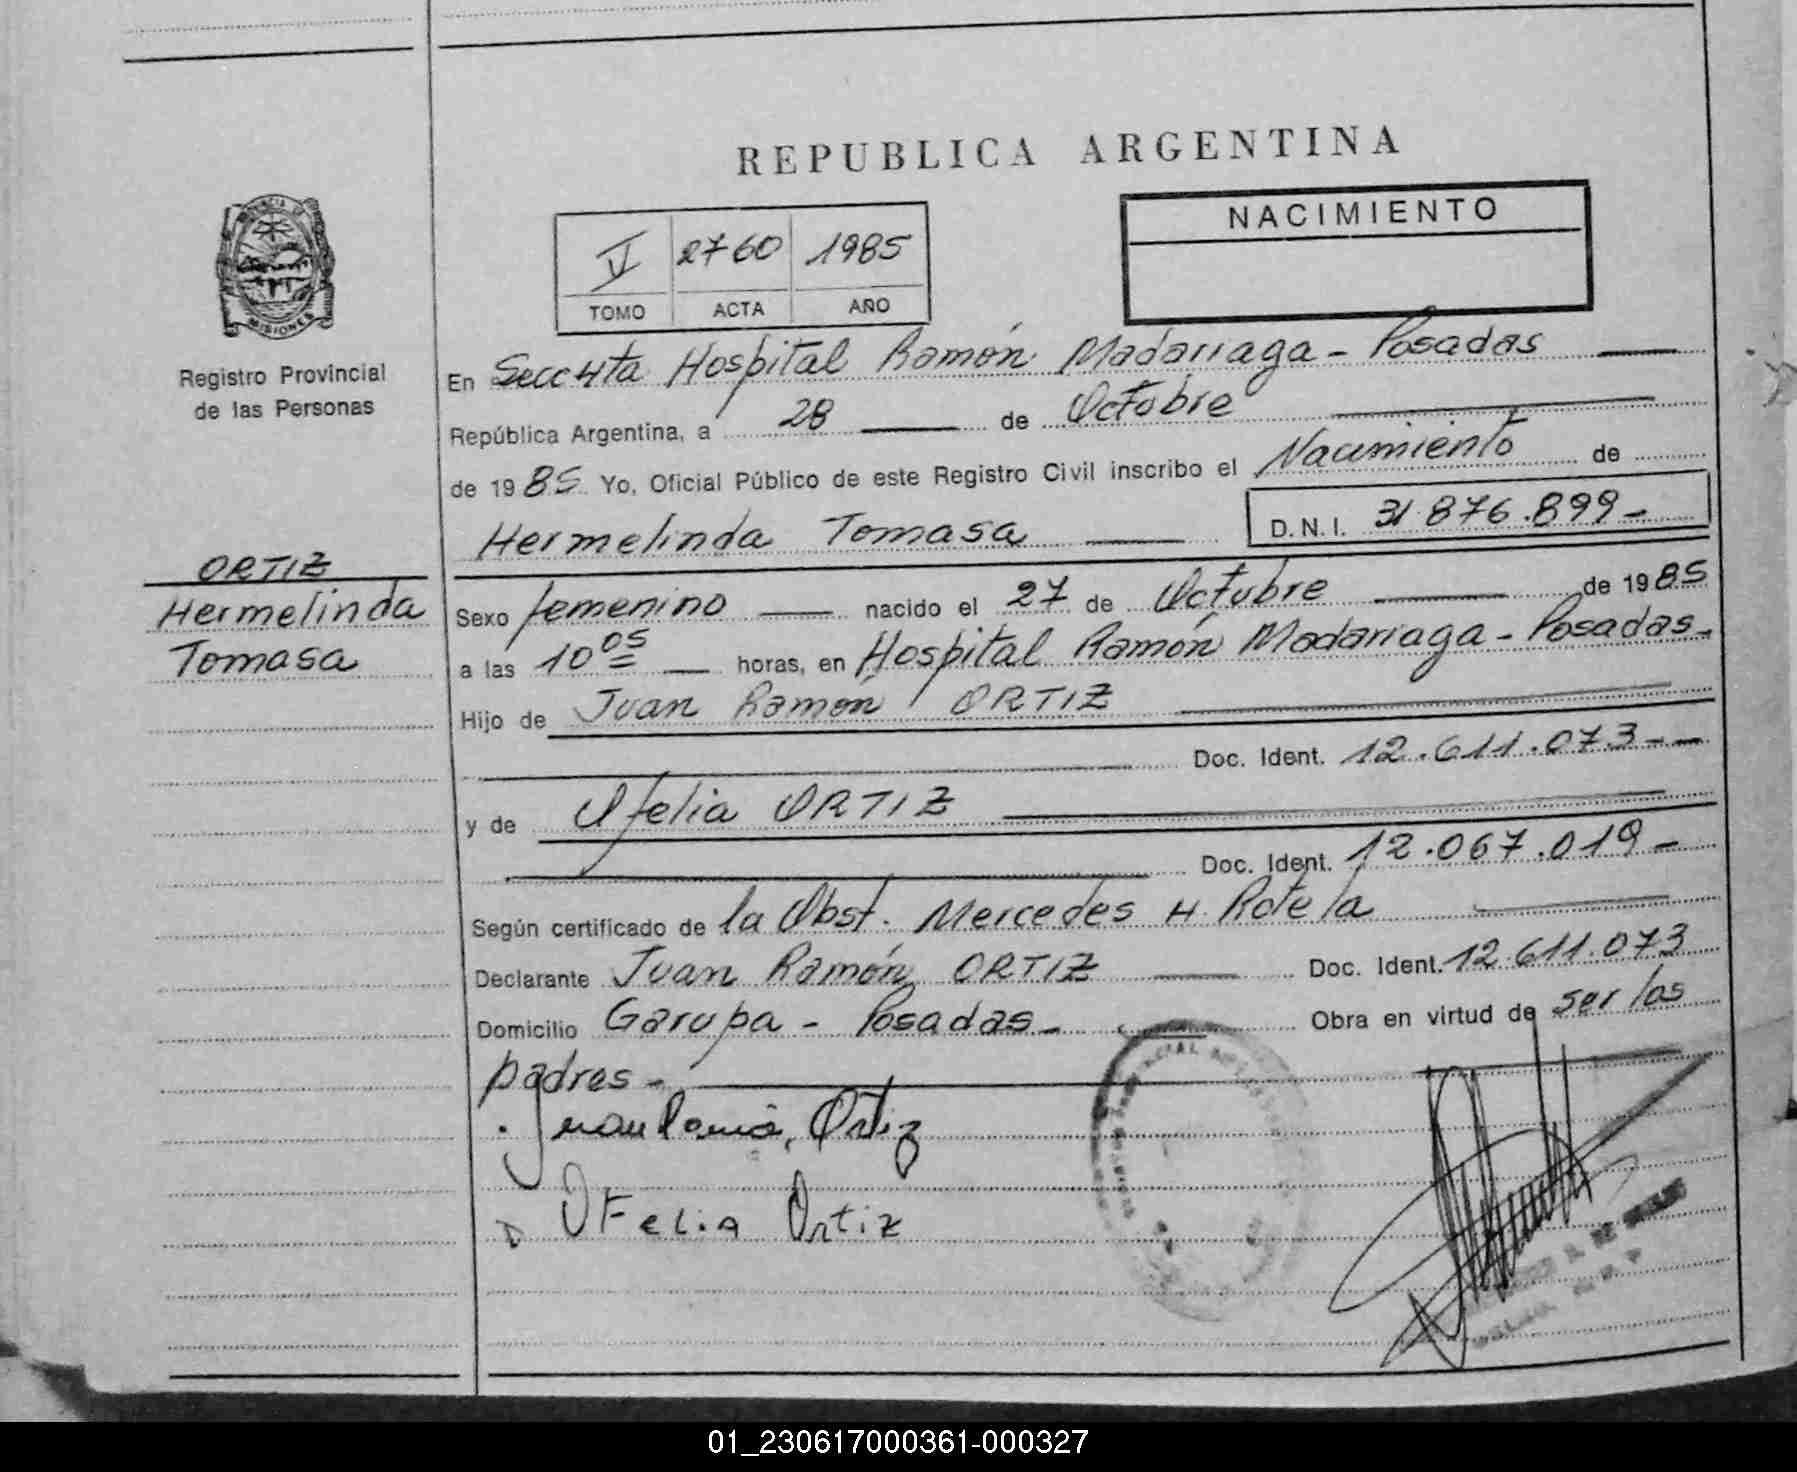 REPUBLICA ARGENTINA
PROVINCIA DE
MISIONES
Registro Provincial
de las Personas
V 2760 1985
TOMO ACTA AÑO
NACIMIENTO
En Secc 4ta Hospital Ramón Madariaga - Posadas
República Argentina, a 28 de Octobre
de 1985 Yo, Oficial Público de este Registro Civil inscribo el Nacimiento de
Hermelinda Tomasa D.N.I. 31.876.899-
ORTIZ
Hermelinda
Tomasa
Sexo femenino nacido el 27 de Octubre de 1985
a las 10 05 horas, en Hospital Ramón Madariaga - Posadas-
Hijo de Juan Ramón ORTIZ
Doc. Ident. 12.611.073--
y de Ofelia ORTIZ
Doc. Ident. 12.067.019-
Según certificado de la Obst. Mercedes H. Rotela
Declarante Juan Ramón ORTIZ Doc. Ident. 12.611.073
Domicilio Garupa - Posadas- Obra en virtud de ser los
padres-
Juan Ortiz
OFelia Ortiz
01_230617000361-000327